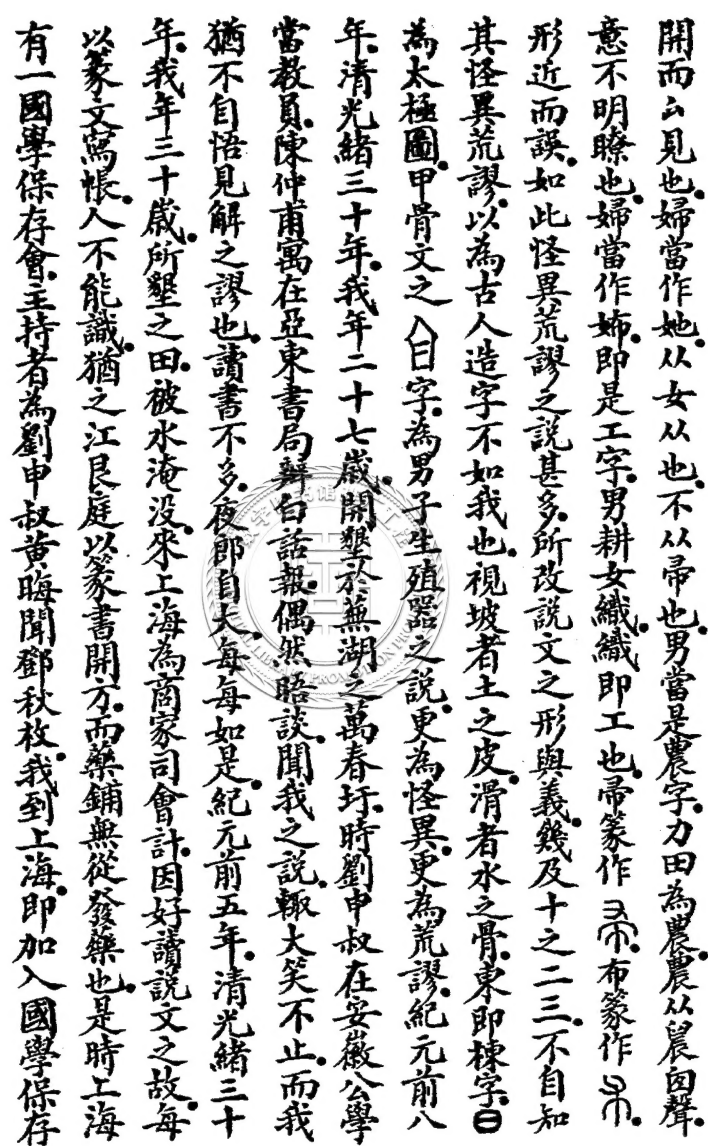 開而厶見也婦當作她从女从也不从帚也男當是農字力田為農農从晨囟聲
意不明瞭也婦當作姊即是工字男耕女織織即工也帚篆作布篆作
形近而誤如此怪異荒謬之說甚多所改說文之形與義幾及十之二三不自知
其怪異荒謬以為古人造字不如我也視坡者土之皮滑者水之骨東即棟字日
為太極圖甲骨文之日字為男子生殖器之說更為怪異更為荒謬紀元前八
年清光緒三十年我年二十七歲開墾於蕪湖之萬春圩時劉申叔在安徽公學
當教員陳仲甫寓在亞東書局辦白話報偶然晤談聞我之說輙大笑不止而我
猶不自悟見解之謬也讀書不多夜郎自大每每如是紀元前五年清光緒三十
年我年三十歲所墾之田被水淹没來上海為商家司會計因好讀說文之故每
以篆文寫帳人不能識猶之江艮庭以篆書開方而藥鋪無從發藥也是時上海
有一國學保存會主持者為劉申叔黃晦聞鄧秋枚我到上海即加入國學保存